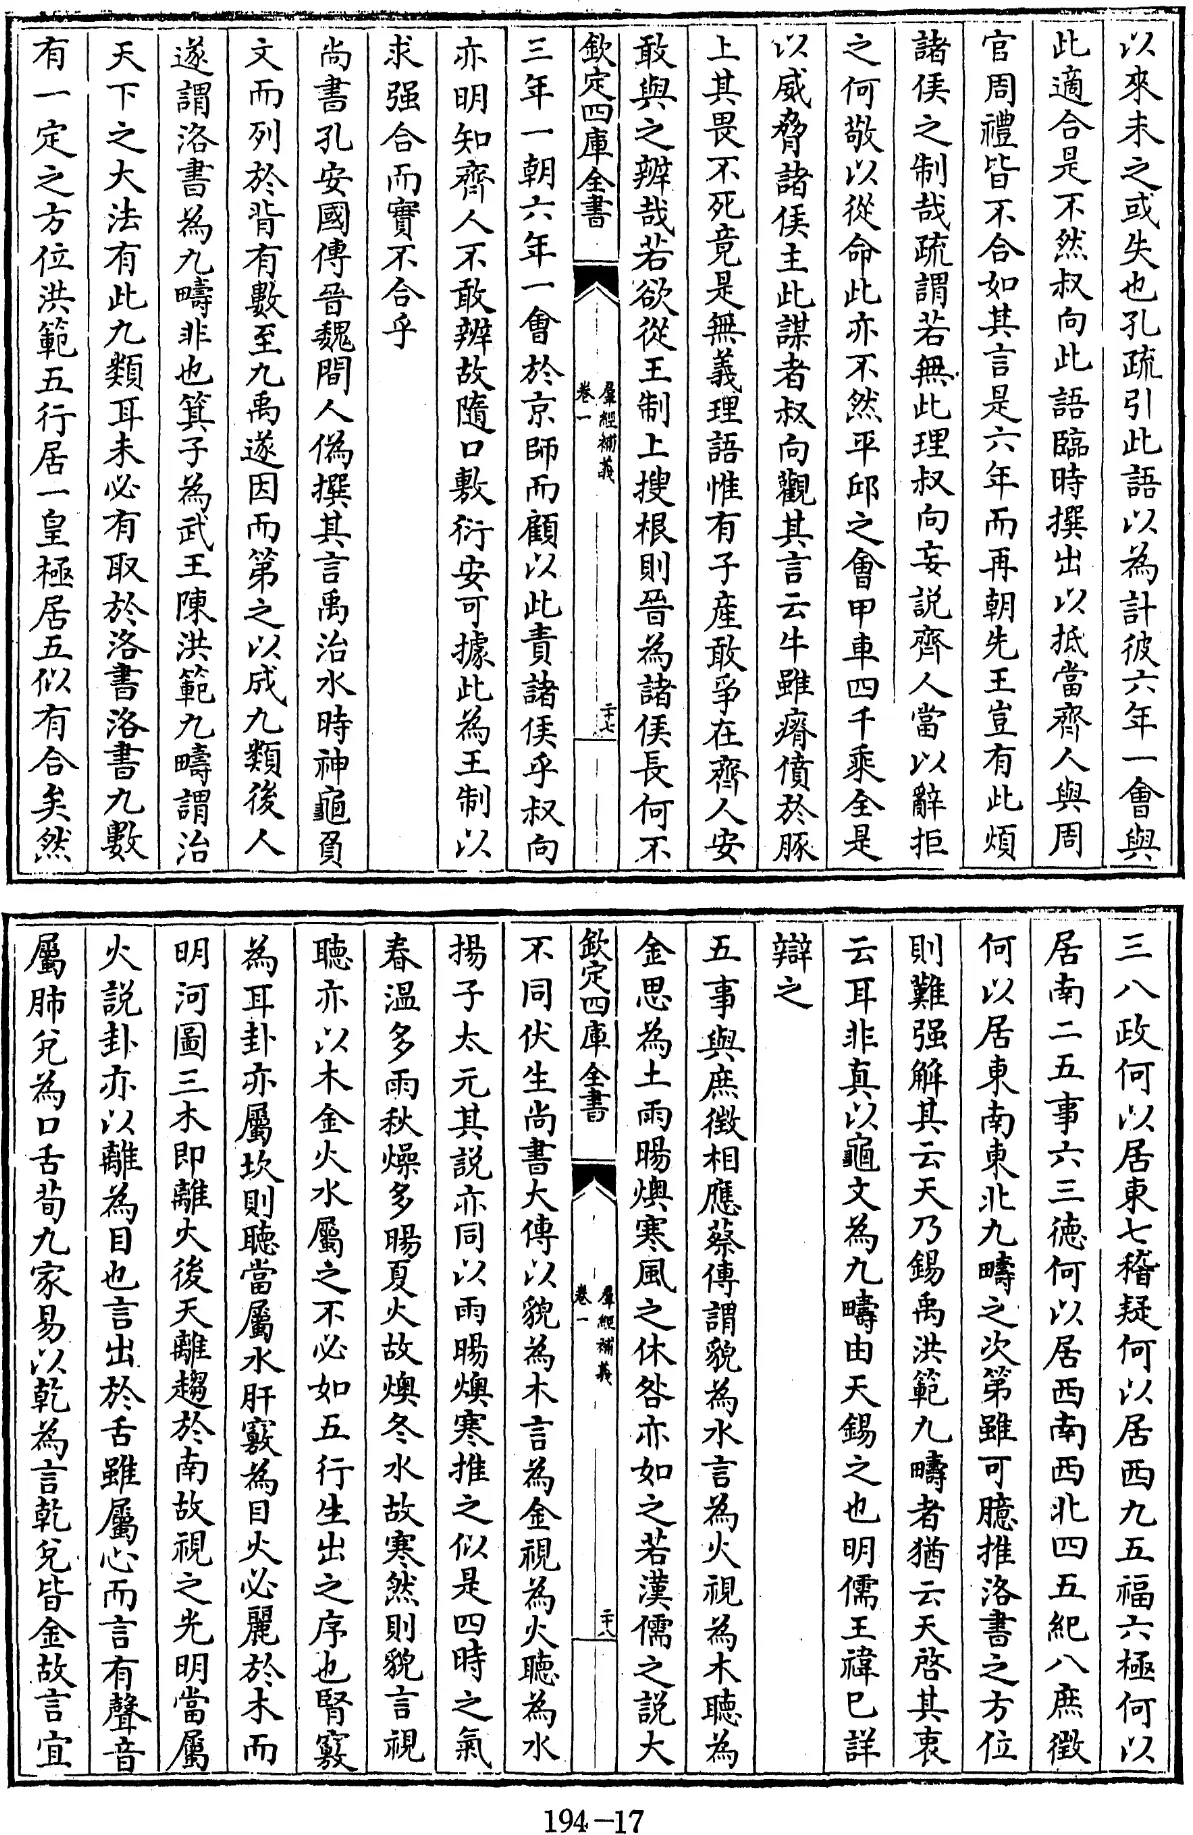 以來未之或失也孔疏引此語以為計彼六年一會與
此適合是不然叔向此語臨時撰出以抵當齊人與周
官周禮皆不合如其言是六年而再朝先王豈有此煩
諸侯之制哉疏謂若無此理叔向妄説齊人當以辭拒
之何敬以從命此亦不然平邱之會甲車四千乘全是
以威脅諸侯主此謀者叔向觀其言云牛雖瘠僨於豚
上其畏不死竟是無義理語惟有子產敢爭在齊人安
敢與之辨哉若欲從王制上搜根則晉為諸侯長何不
欽定四庫全書
羣經補義
卷一
二十七
三年一朝六年一會於京師而顧以此責諸侯乎叔向
亦明知齊人不敢辨故隨口敷衍安可據此為王制以
求强合而實不合乎
尚書孔安國傳晉魏間人偽撰其言禹治水時神龜負
文而列於背有數至九禹遂因而第之以成九類後人
遂謂洛書為九疇非也箕子為武王陳洪範九疇謂治
天下之大法有此九類耳未必有取於洛書洛書九數
有一定之方位洪範五行居一皇極居五似有合矣然
三八政何以居東七稽疑何以居西九五福六極何以
居南二五事六三德何以居西南西北四五紀八庶徵
何以居東南東北九疇之次第雖可臆推洛書之方位
則難强解其云天乃錫禹洪範九疇者猶云天啓其衷
云耳非真以龜文為九疇由天錫之也明儒王禕巳詳
辯之
五事與庶徵相應蔡傳謂貌為水言為火視為木聽為
金思為土雨暘燠寒風之休咎亦如之若漢儒之説大
欽定四庫全書
羣經補義
卷一
二十八
不同伏生尚書大傳以貌為木言為金視為火聽為水
揚子太元其説亦同以雨暘燠寒推之似是四時之氣
春溫多雨秋燥多暘夏火故燠冬水故寒然則貌言視
聽亦以木金火水屬之不必如五行生出之序也腎竅
為耳卦亦屬坎則聽當屬水肝竅為目火必麗於木而
明河圖三木即離火後天離趨於南故視之光明當屬
火説卦亦以離為目也言出於舌雖屬心而言有聲音
屬肺兌為口舌荀九家易以乾為言乾兌皆金故言宜
194-17